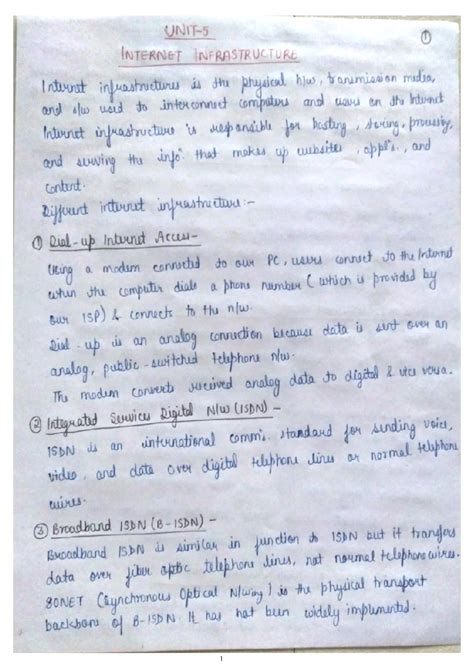 UNIT-5
①
INTERNET INFRASTRUCTURE
Internet infrastructure is the physical h/w, transmission media,
and s/w used to interconnect computers and users on the Internet
Internet infrastructure is responsible for hosting, storing, processing,
and serving the info? that makes up websites, appl's., and
content.
Different internet infrastructure:-
① Dial-up Internet Access-
Using a modem connected to our PC, users connect to the Internet
when the computer dials a phone number (which is provided by
our ISP) & connects to the n/w.
Dial-up is an analog connection because data is sent over an
analog, public-switched telephone n/w.
The modem converts received analog data to digital & vice versa.
② Integrated Services Digital N/W (ISDN) -
ISDN is an international comm's. standard for sending voice,
video, and data over digital telephone lines or normal telephone
wires.
③ Broadband ISDN (B-ISDN) -
Broadband ISDN is similar in function to ISDN but it transfers
data over fiber optic telephone lines, not normal telephone wires.
SONET (Synchronous Optical N/wing) is the physical transport
backbone of B-ISDN. It has not been widely implemented.
1